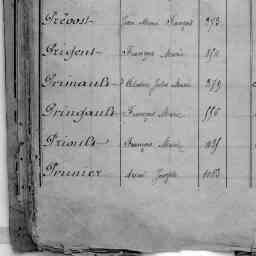 Prévost Jean Marie François 293
Prigent François Marie
Primault Jules Marie 379
Pringault François Marie 556
Prioult François Marie
Prunier Joseph 1083